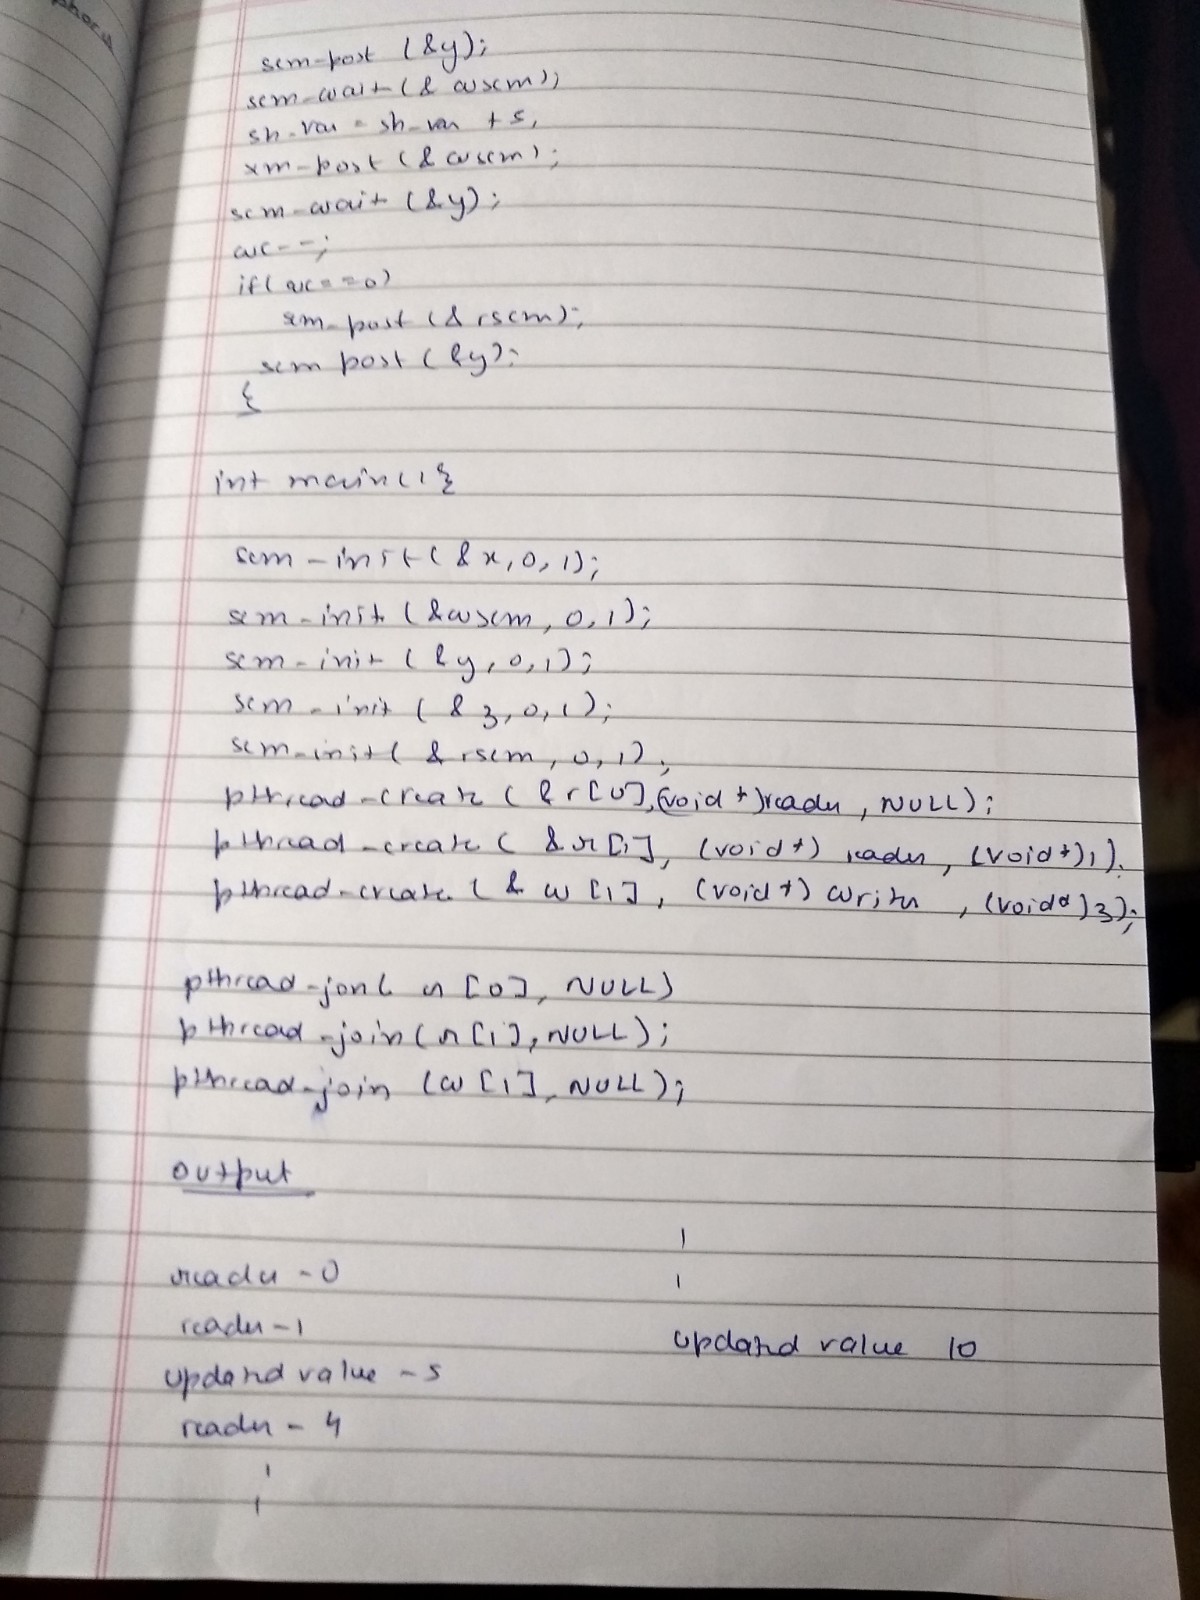 phore
sem-post (&y);
sem-wait (& wsem);
sh-var = sh-var + 5;
sem-post (& wsem);
sem-wait (&y);
wc--;
if( wc==0)
sem-post (& rsem);
sem post ( &y);
{
int main(){
sem-init( &x, 0, 1);
sem-init (&wsem, 0, 1);
sem-init ( &y, 0, 1);
sem-init ( &z, 0, 1);
sem-init( &rsem, 0, 1);
pthread-create ( &r[0], (void *)reader, NULL);
pthread-create ( &r[1], (void*) reader, (void*)1).
pthread-create ( & w [1], (void*) writer, (void*)3);
pthread-jon( r [0], NULL)
pthread-join(r[1], NULL);
pthread-join (w [1], NULL);
output
reader - 0
reader - 1
updated value - 5
reader - 4
updated value 10